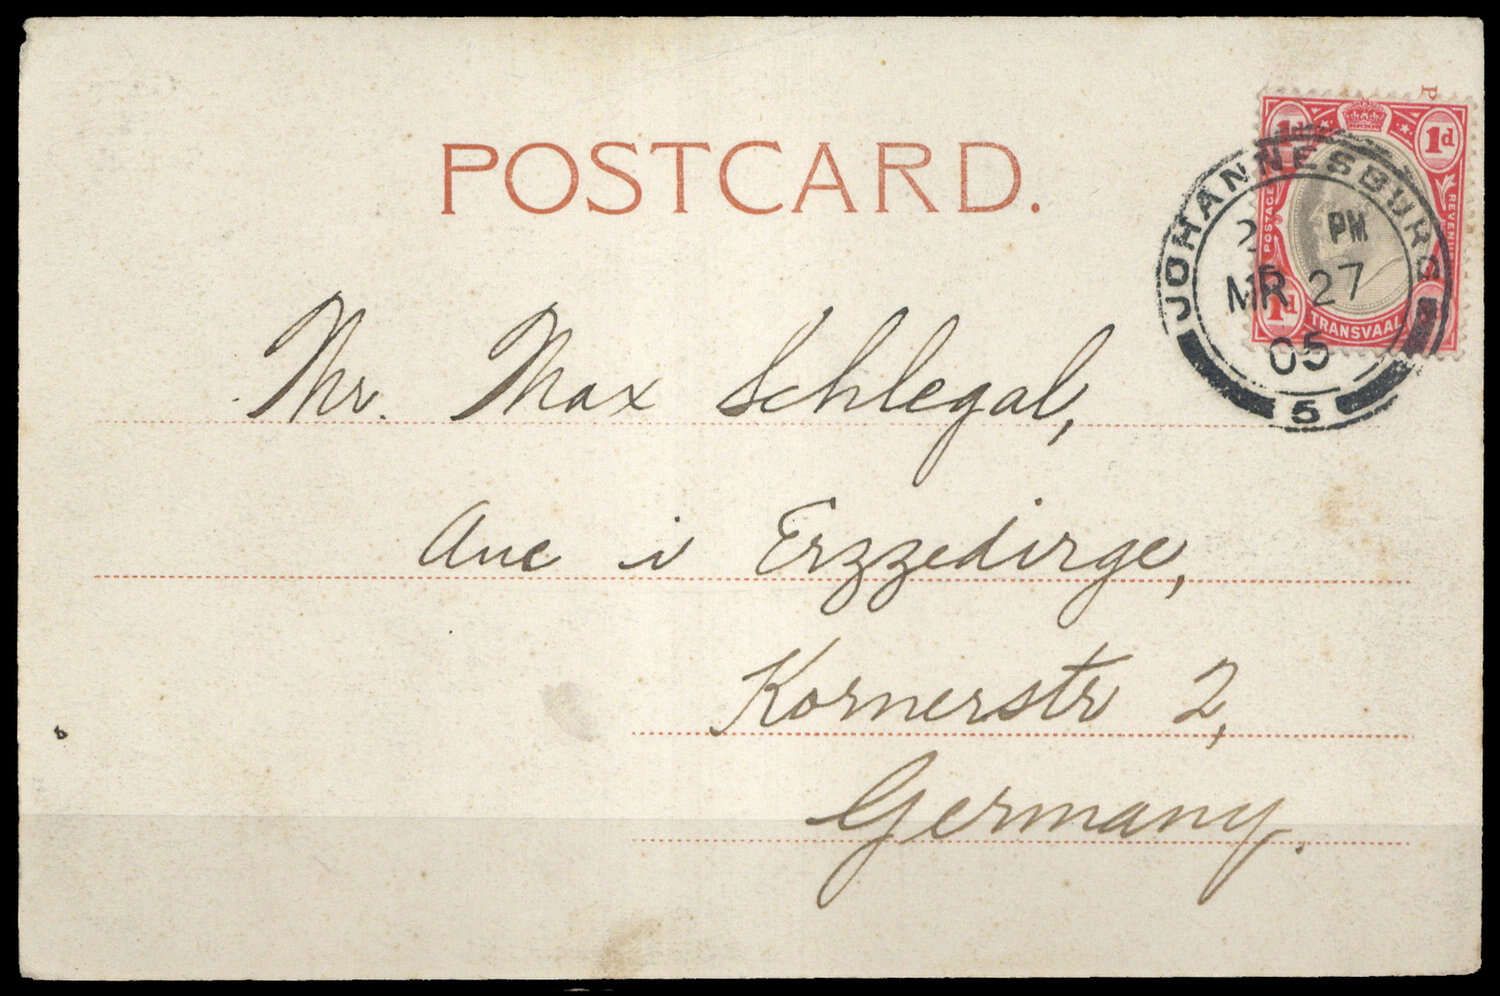 POSTCARD.
P
1d 1d
POSTAGE REVENUE
1d
TRANSVAAL
JOHANNESBURG
PM
MR 27
05
5
Mr. Max Schlegal,
Aue i Erzzedirge,
Kornerstr 2,
Germany.